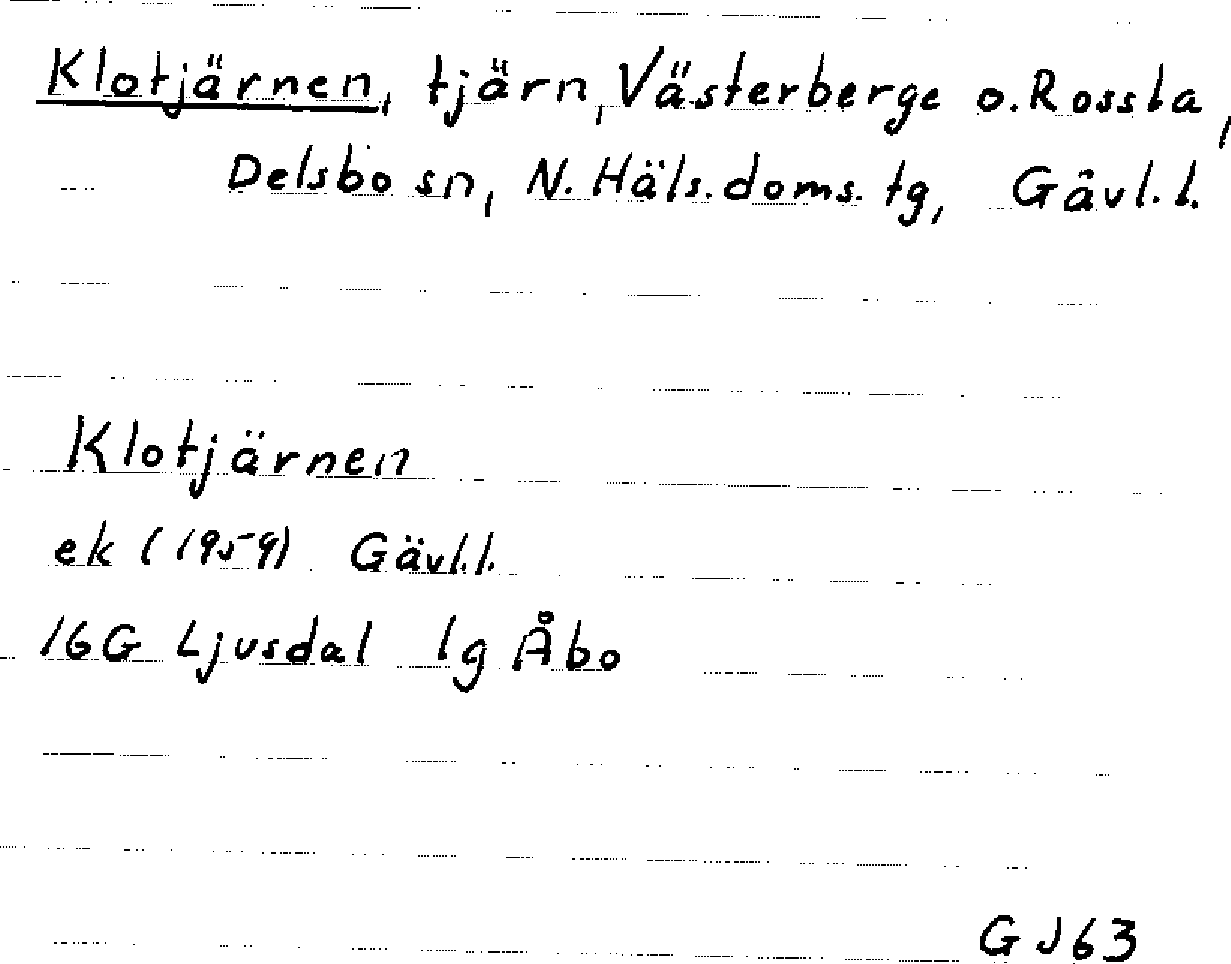 Klotjärnen, tjärn, Västerberge o. Rossla,
Delsbo sn, N. Häls. doms. tg, Gävl. l.
Klotjärnen
ek (1959) Gävl. l.
16G Ljusdal lg Åbo
GJ63